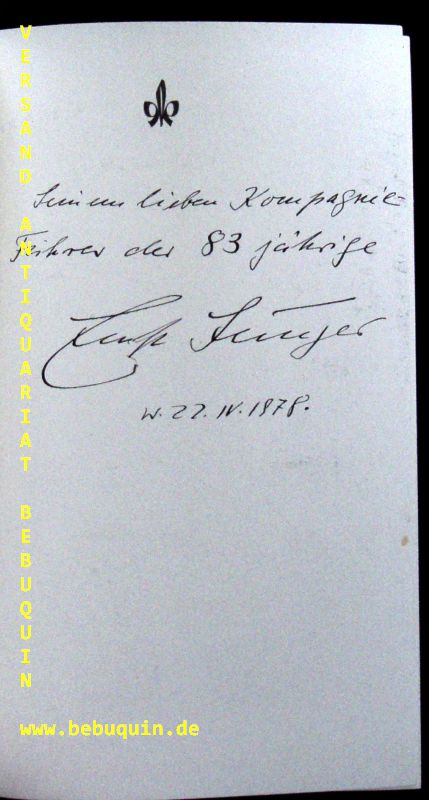 Seinem lieben Kompagnie-
Führer der 83 jährige
Ernst Jünger
W. 22. IV. 1978.
VERSAND ANTIQUARIAT BEBUQUIN
www.bebuquin.de